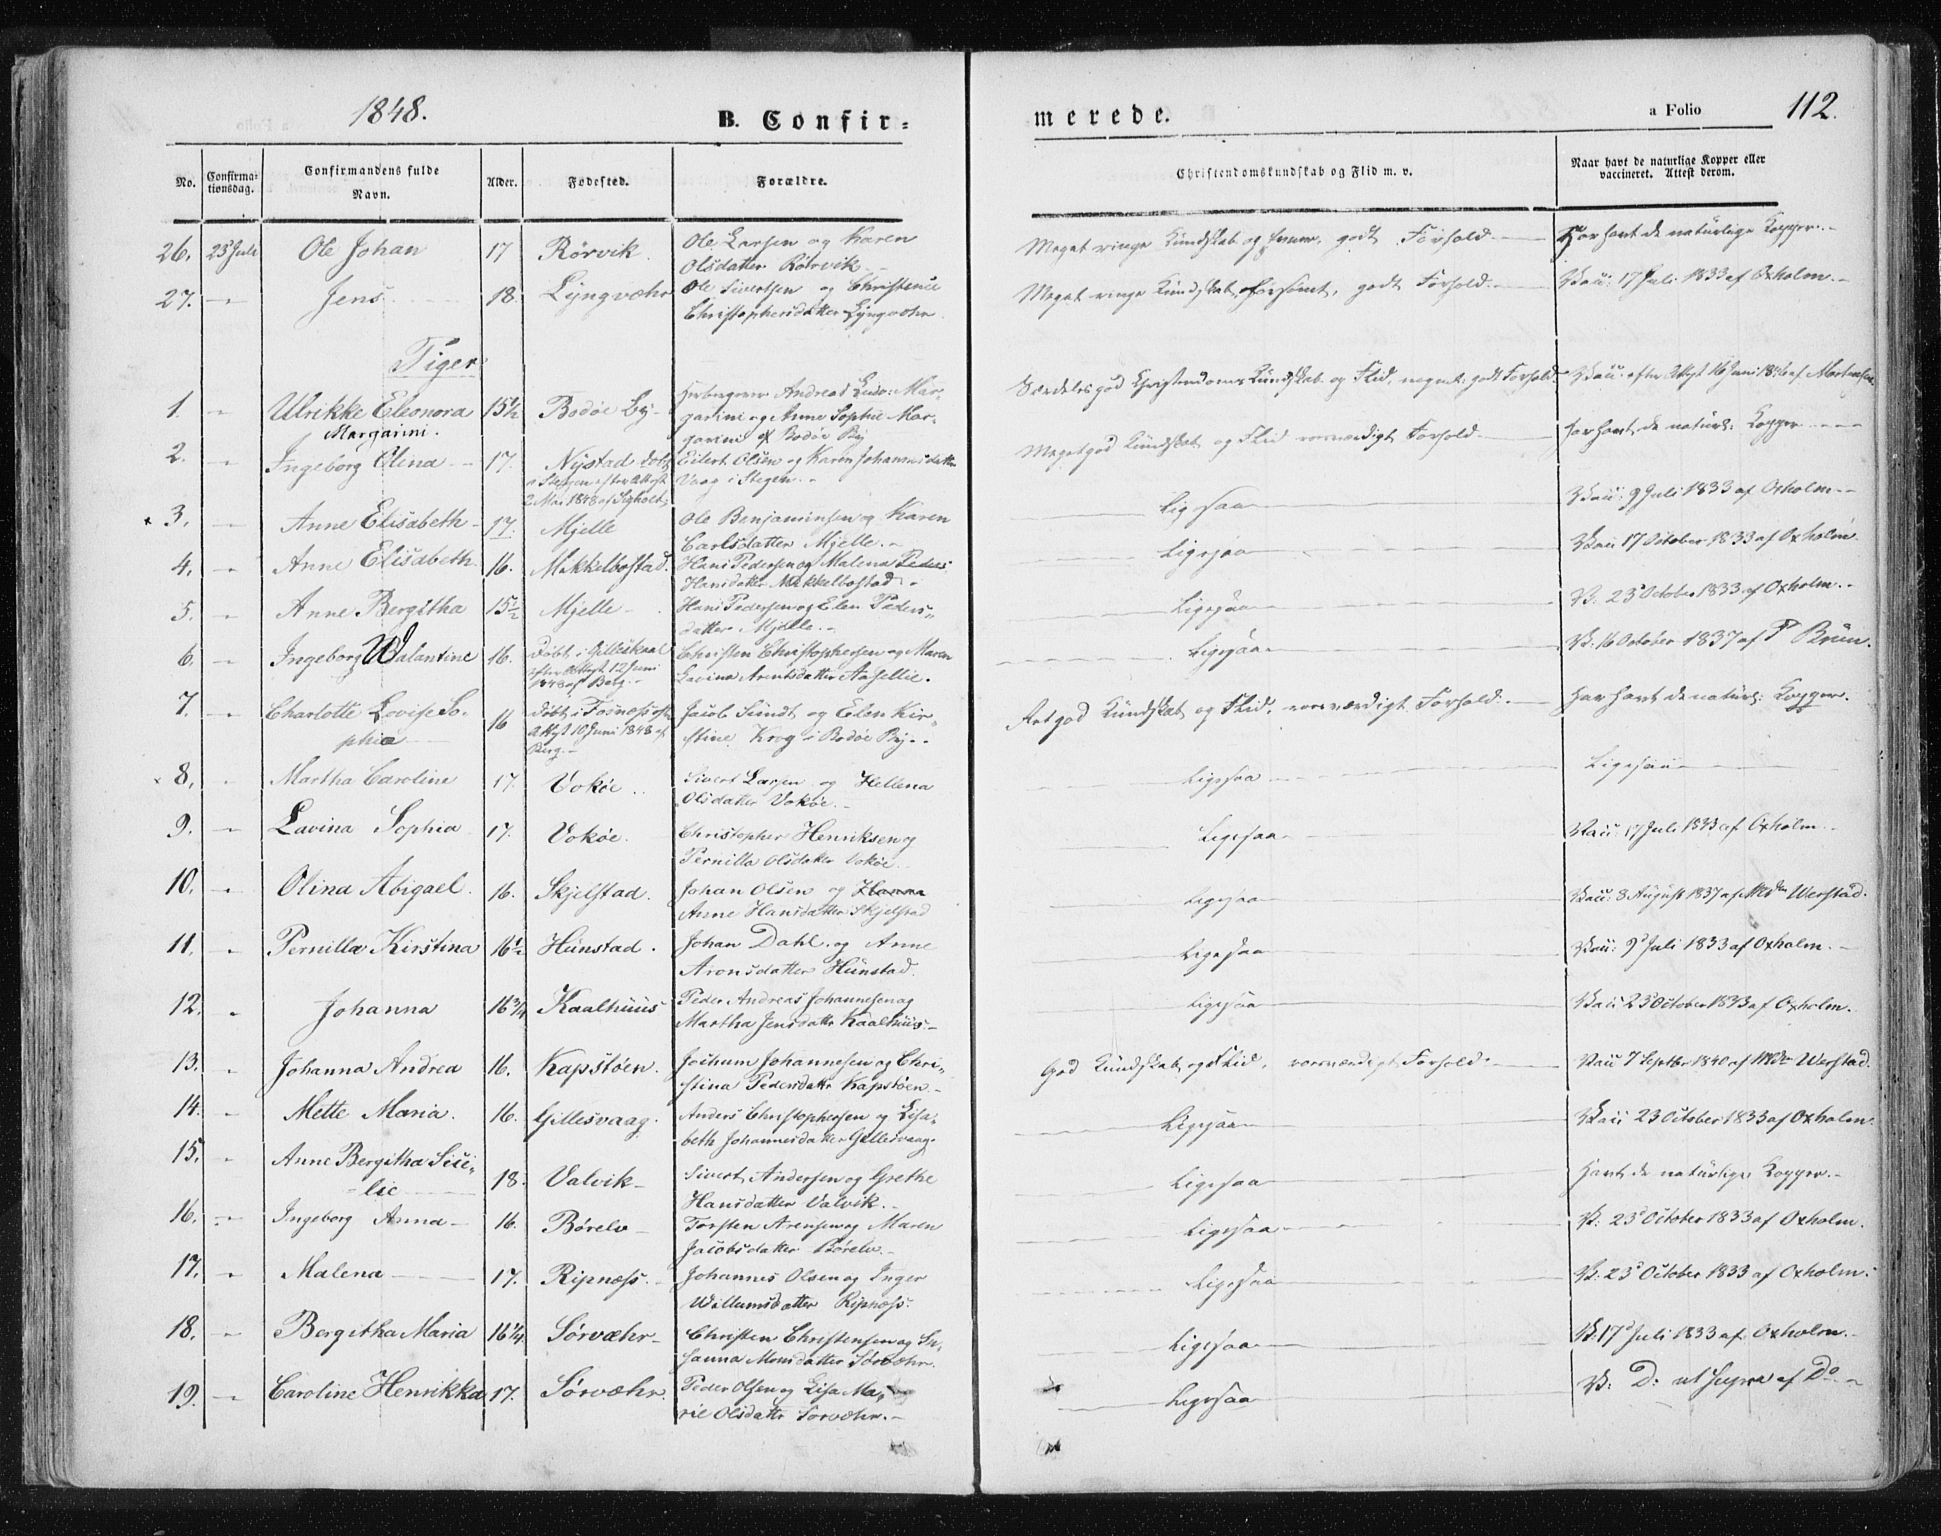 1848.
B. Confir=
merede.
a Folio 112.
No.
Confirma-
tionsdag.
Confirmandens fulde
Navn.
Alder.
Fødested.
Forældre.
Christendomskundskab og Flid m. v.
Naar havt de naturlige Kopper eller
vaccineret. Attest derom.
26. 23 Juli Ole Johan 17 Rörvik. Ole Larsen og Karen
Olsdatter Rörvik. Meget ringe Kundskab og godt Forhold. Har havt de naturlige Kopper.
27. " Jens 18. Lyngvæhr Ole Sivertsen og Christense
Christophersdatter Lyngvæhr. Meget ringe Kundskab, godt Forhold. Vacc: 17 Juli 1833 af Oxholm.
Piger
1. " Ulrikke Eleonora
Margarini. 15½ Bodøe By Andreas Mar-
garini og Anne Sophie Mar-
garini af Bodøe By Særdeles god Christendoms Kundskab og Flid, megt. godt Forhold. Vacc: efter Attest af Mortensen
2. " Ingeborg Elina 17. Nystad døbt
i Stegen efter Attest
2 Mai 1848 af Eilert Olsen og Karen Johannisdatter
Vaag i Stegen. Meget god Kundskab og Flid roesværdigt Forhold. har havt de naturl: Kopper
3. " Anne Elisabeth 17. Mjelle Ole Benjaminsen og Karen
Carlsdatter Mjelle. Ligesaa Vacc: 9 Juli 1833 af Oxholm
4. " Anne Elisabeth 16. Mikkelbostad. Hans Pedersen og Malena Peders
Hansdatter Mikkelbostad. Ligesaa Vacc 17 October 1833 af Oxholm.
5. " Anne Bergitha 15½ Mjelle Hans Pedersen og Elen Peders-
datter Mjelle. Ligesaa V. 23 October 1833 af Oxholm.
6. " Ingeborg Walantine 16. Døbt i Gilleskaal
efter Attest 12 Juni
1848 af Berg. Christen Christophersen og Maren
Lavina Arentsdatter Ligesaa V. 16 October 1837 af P Brün.
7. " Charlotte Lovise So-
phia 16 Døbt i
Attest 10 Juni 1848 af
Berg. Jacob Sundt og Elen Kir-
stine Krog i Bodøe By. god Kundskab og Flid, roesværdigt Forhold. har havt de naturl: Kopper.
8. " Martha Caroline 17. Vokøe Sivert Larsen og Hellena
Olsdatter Vokøe. Ligesaa Ligesaa
9. " Lavina Sophia 17. Vokøe. Christopher Henriksen og
Pernilla Olsdatter Vokøe Ligesaa Vacc: 17 Juli 1833 af Oxholm.
10. " Olina Abigael. 16. Skjelstad. Johan Olsen og Hanna
Anne Hansdatter Skjelstad Ligesaa Vacc: 8 August 1837 af Werstad.
11. " Pernilla Kirstina 16½ Hunstad. Johan Dahl. og Anne
Aronsdatter Hunstad. Ligesaa Vacc: 9 Juli 1833 af Oxholm.
12. " Johanna 16¾ Kaalhuus Peder Andreas Johannesen og
Martha Jensdattr Kaalhuus. Ligesaa Vacc 23 October 1833 af Oxholm.
13. " Johanna Andrea 16. Kapstöen. Jochum Johannesen og Chri-
stina Pedersdattr Kapstöen. God Kundskab og Flid, roesværdigt Forhold. Vacc 7 Septbr 1840 af Werstad.
14. " Mette Maria. 16. Gillesvaag. Anders Christophersen og Lisa-
beth Johannesdatter Gillesvaag. Ligesaa Vacc 23 October 1833 af Oxholm.
15. " Anne Bergitha Sici-
lie 18. Valvik Sivert Andersen og Grethe
Hansdatter Valvik. Ligesaa havt de naturlige Kopper.
16. " Ingeborg Anna 16. Børelv Torsten Arensen og Maren
Jacobsdatter Børelv. Ligesaa V. 23 October 1833 af Oxholm.
17. " Malena 17. Ripnæss. Johannes Olsen og Inger
Willumsdatter Ripnæss. Ligesaa V. 23 October 1833 af Oxholm.
18. " Bergitha Maria 16¼ Sörvæhr Christen Christensen og Su-
sanna Monsdatter Sörvæhr. Ligesaa V. 17 Juli 1833 af Oxholm.
19. " Caroline Henrikka 17. Sörvæhr. Peder Olsen og Lisa Ma-
rie Olsdattr Sörvæhr. Ligesaa V. D: ut supra af Do.